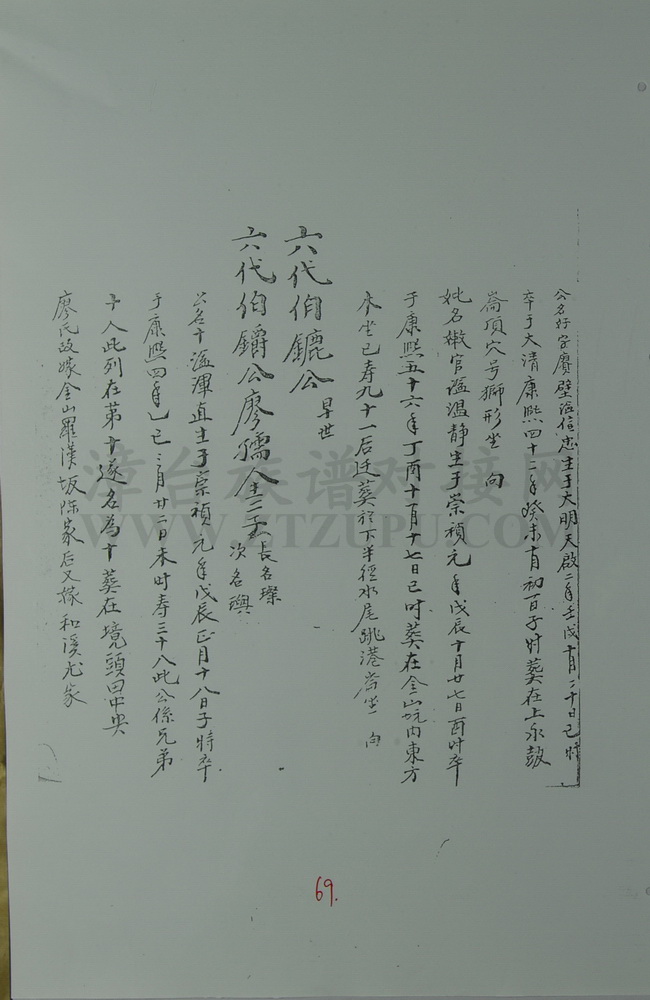 公名好字賡壁諡信忠生于大明天啟二年壬戌十月二十日巳時
卒于大清康熙四十二年癸未十月初一日子时葬在上永鼓
崙項穴号獅形坐 向
妣名嫩官諡温静生于崇禎元年戊辰十月廿七日酉时卒
于康熙五十六年丁酉十一月十七日巳时葬在金山坑内東方
木坐巳寿九十一后迁葬於下半徑水尾跳港崙坐 向
六代伯鑣公 早世
六代伯鑃公廖孺人生二子 長名璨 次名璵
公名十諡渾直生于崇禎元年戊辰正月十八日子時卒
于康熙四年乙巳三月廿二日未时寿三十八此公係兄弟
十人此列在第十遂名為十葬在境頭田中央
廖氏改嫁金山羅漢坂陈家后又嫁和溪尤家
漳台族谱对接网
WWW.ZTZUPU.COM
69.